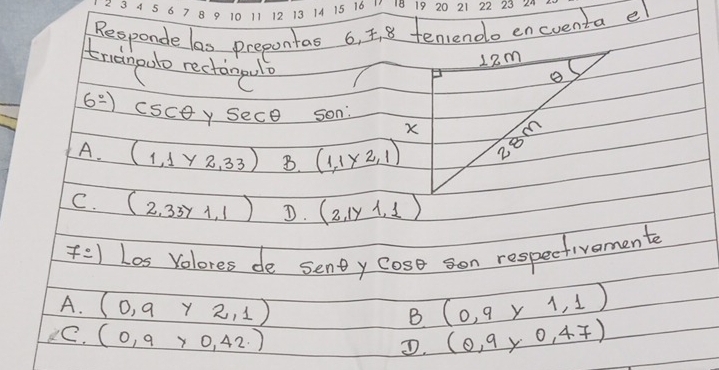 2 3 4 5 6 7 8 9 10 11 12 13 14 15 16 17 18 19 20 21 22 23 24
Responde las preguntas 6,7,8 teniendo en cuenta el
triángulo rectángulo
12m
θ
6º) cscθ y secθ son:
x
28m
A. (1,1 y 2,33) B. (1,1 y 2,1)
C. (2,33 y 1,1) D. (2,1 y 1,1)
7º) Los Valores de senθ y cosθ son respectivamente
A. (0,9 y 2,1) B (0,9 y 1,1)
C. (0,9 y 0,42.) D. (0,9 y 0,47)